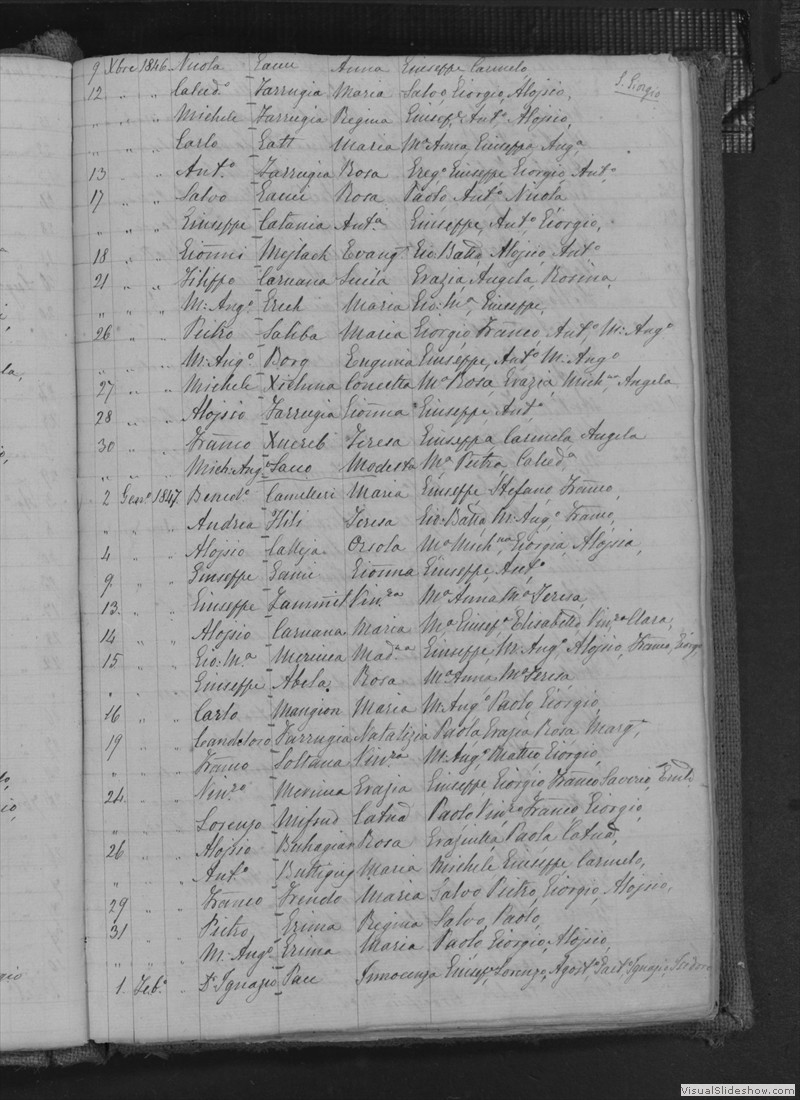 9 Xbre 1846 Nicola Anna Giuseppe Carmelo,
S. Giorgio
12 " " Calced.o Farrugia Maria Salvo, Giorgio, Alojsio,
" " " Michele Farrugia Regina Giusep.e Ant.o Alojsio,
" " " Carlo Gatt Maria M.a Anna, Giuseppe, Ang.a
13 " " Ant.o Farrugia Rosa Greg.o Giuseppe Giorgio, Ant.o
17 " " Salvo Rosa Paolo, Ant.o Nicola
" " " Giuseppe Catania Ant.a Giuseppe, Ant.o Giorgio,
18 " " Giovanni Mejlach Evang.a Gio Batta, Alojsio, Ant.o
21 " " Filippo Caruana Lucia Grazia, Angela, Rosina,
" " " M: Ang.o Grech Maria Gio: M.a, Giuseppe,
26 " " Pietro Saliba Maria Giorgio Franco, Ant.o M: Ang.o
" " " M: Ang.o Borg Eugenia Giuseppe, Ant.o M: Ang.o
27 " " Michele Xicluna Concetta M.a Rosa, Grazia, Mich.na Angela
28 " " Alojsio Farrugia Gionna Giuseppe, Ant.o
30 " " Franco Xuereb Teresa Giuseppa Carmela Angela
" " " Mich:Ang.o Sacco Modesta M.a Pietra Calced.a
2 Gen.o 1847 Bened.o Camilleri Maria Giuseppe Stefano, Franco,
" " " Andrea Hili Teresa Gio: Batta, M: Ang.o Franco,
4 " " Alojsio Calleja Orsola M.a Mich.na, Giorgia, Alojsia,
9 " " Giuseppe Gionna Giuseppe, Ant.o
13 " " Giuseppe Zammit Vin.za M.a Anna M.a Teresa,
14 " " Alojsio Caruana Maria M.a Giusep.a Elisabetta Vin.za Clara,
15 " " Gio: M.a Mad.na Giuseppe, M: Ang.o, Alojsio, Franco, Giorgio
" " " Giuseppe Abela Rosa M.a Anna M.a Teresa
16 " " Carlo Mangion Maria M: Ang.o Paolo, Giorgio,
19 " " Candeloro Farrugia Natalizia Paola Grazia Rosa Marg.ta
" " " Franco Soltana Vin.za M: Ang.o Matteo Giorgio,
24 " " Vin.zo Grazia Giuseppe Giorgio Franco Saverio,
" " " Lorenzo Mifsud Catna Paolo Vin.zo Franco Giorgio,
26 " " Alojsio Buhagiar Rosa Paola Catna,
" " " Ant.o Buttigieg Maria Michele Giuseppe Carmelo,
29 " " Franco Maria Salvo Pietro, Giorgio, Alojsio,
31 " " Pietro Grima Regina Salvo, Paolo,
" " " M: Ang.o Grima Maria Paolo Giorgio, Alojsio,
1 Feb.o " D.r Ignazio Pace Innocenza Giusep.e, Lorenzo, Ignazio Isidoro
VisualSlideshow.com